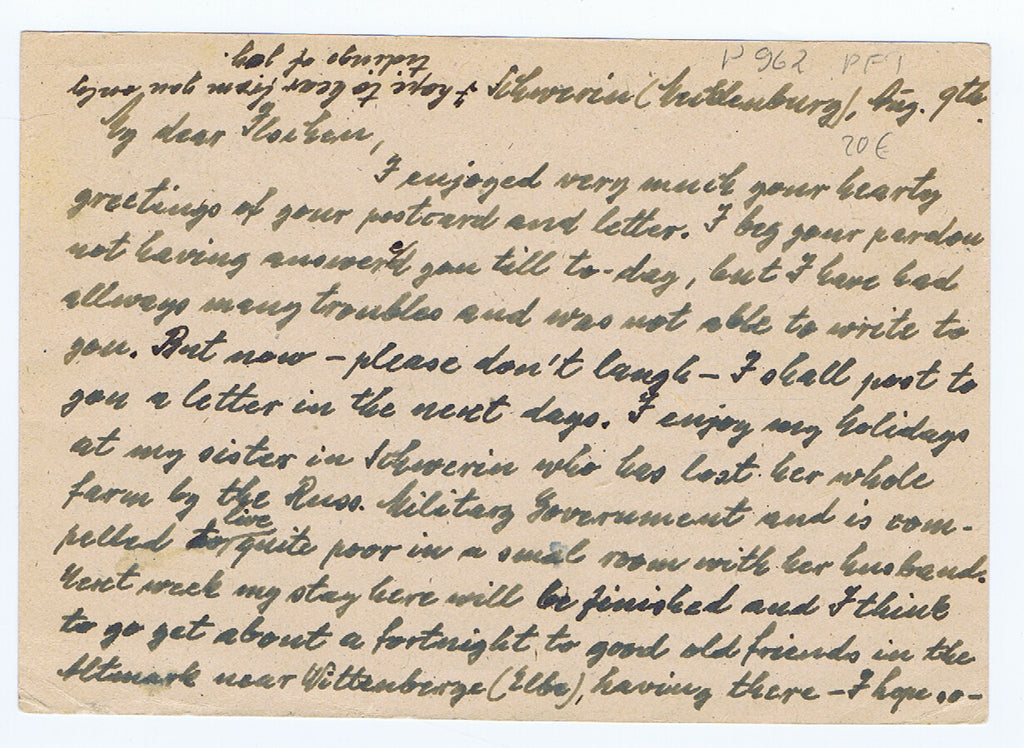 P 962 PFT
tidings of you.
I hope to hear from you early
Schwerin (Mecklenburg), Aug. 9th.
20 €
My dear
I enjoyed very much your hearty
greetings of your postcard and letter. I beg your pardon
not having answered you till to-day, but I have had
allways many troubles and was not able to write to
you. But now – please don't laugh – I shall post to
you a letter in the next days. I enjoy my holidays
at my sister in Schwerin who has lost her whole
farm by the Russ. Military Government and is com-
pelled to live quite poor in a small room with her husband.
Next week my stay here will be finished and I think
to go get about a fortnight to good old friends in the
Altmark near Wittenberge (Elbe), having there – I hope so –